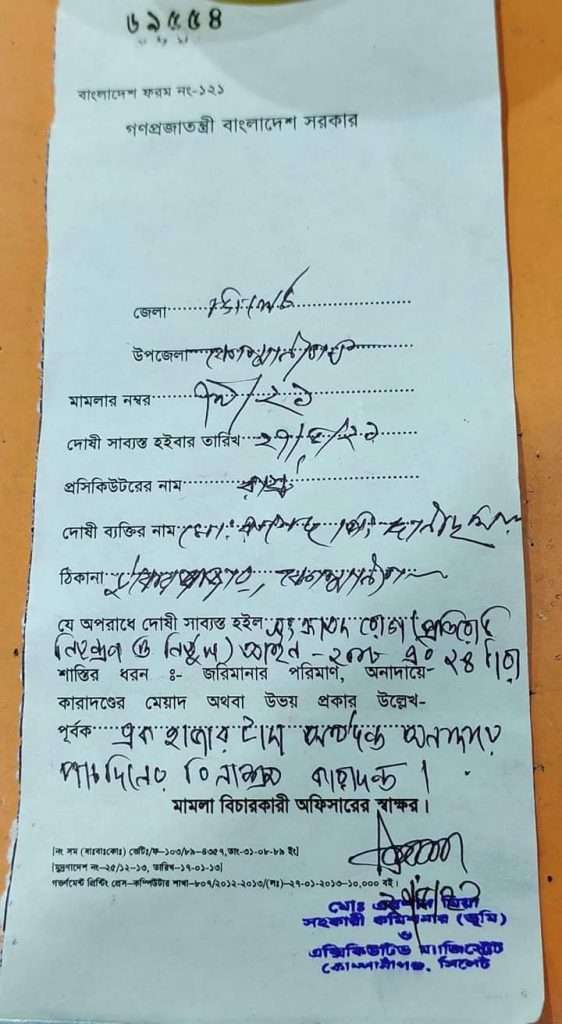 ৬৯৫৫৪
বাংলাদেশ ফরম নং-১২১
গণপ্রজাতন্ত্রী বাংলাদেশ সরকার
জেলা সিলেট
উপজেলা কোম্পানীগঞ্জ
মামলার নম্বর /২১
দোষী সাব্যস্ত হইবার তারিখ /২১
প্রসিকিউটরের নাম রাষ্ট্র
দোষী ব্যক্তির নাম মো:
ঠিকানা কোম্পানীগঞ্জ
যে অপরাধে দোষী সাব্যস্ত হইল সংক্রামক রোগ (প্রতিরোধ
নিয়ন্ত্রণ ও নির্মূল) আইন - ২০১৮ এর ২৪ ধারা
শাস্তির ধরন ঃ- জরিমানার পরিমাণ, অনাদায়ে-
কারাদণ্ডের মেয়াদ অথবা উভয় প্রকার উল্লেখ-
পূর্বক এক হাজার টাকা অর্থদন্ড অনাদায়ে
পাঁচদিনের বিনাশ্রম কারাদন্ড।
মামলা বিচারকারী অফিসারের স্বাক্ষর।
[নং সম (বাঃবাঃকোঃ) ভেটিং/ফ-১০৩/৮৯-৪৩৫৭,তাং-৩১-০৮-৮৯ ইং]
[মুদ্রণাদেশ নং-২৫/১২-১৩, তারিখ-১৭-০১-১৩]
গভর্নমেন্ট প্রিন্টিং প্রেস-কম্পিউটার শাখা-৮০৭/২০১২-২০১৩/(লঃ)-২৭-০১-২০১৩-১০,০০০ বই।
মোঃ মিয়া
সহকারী কমিশনার (ভূমি)
ও
এক্সিকিউটিভ ম্যাজিস্ট্রেট
কোম্পানীগঞ্জ, সিলেট